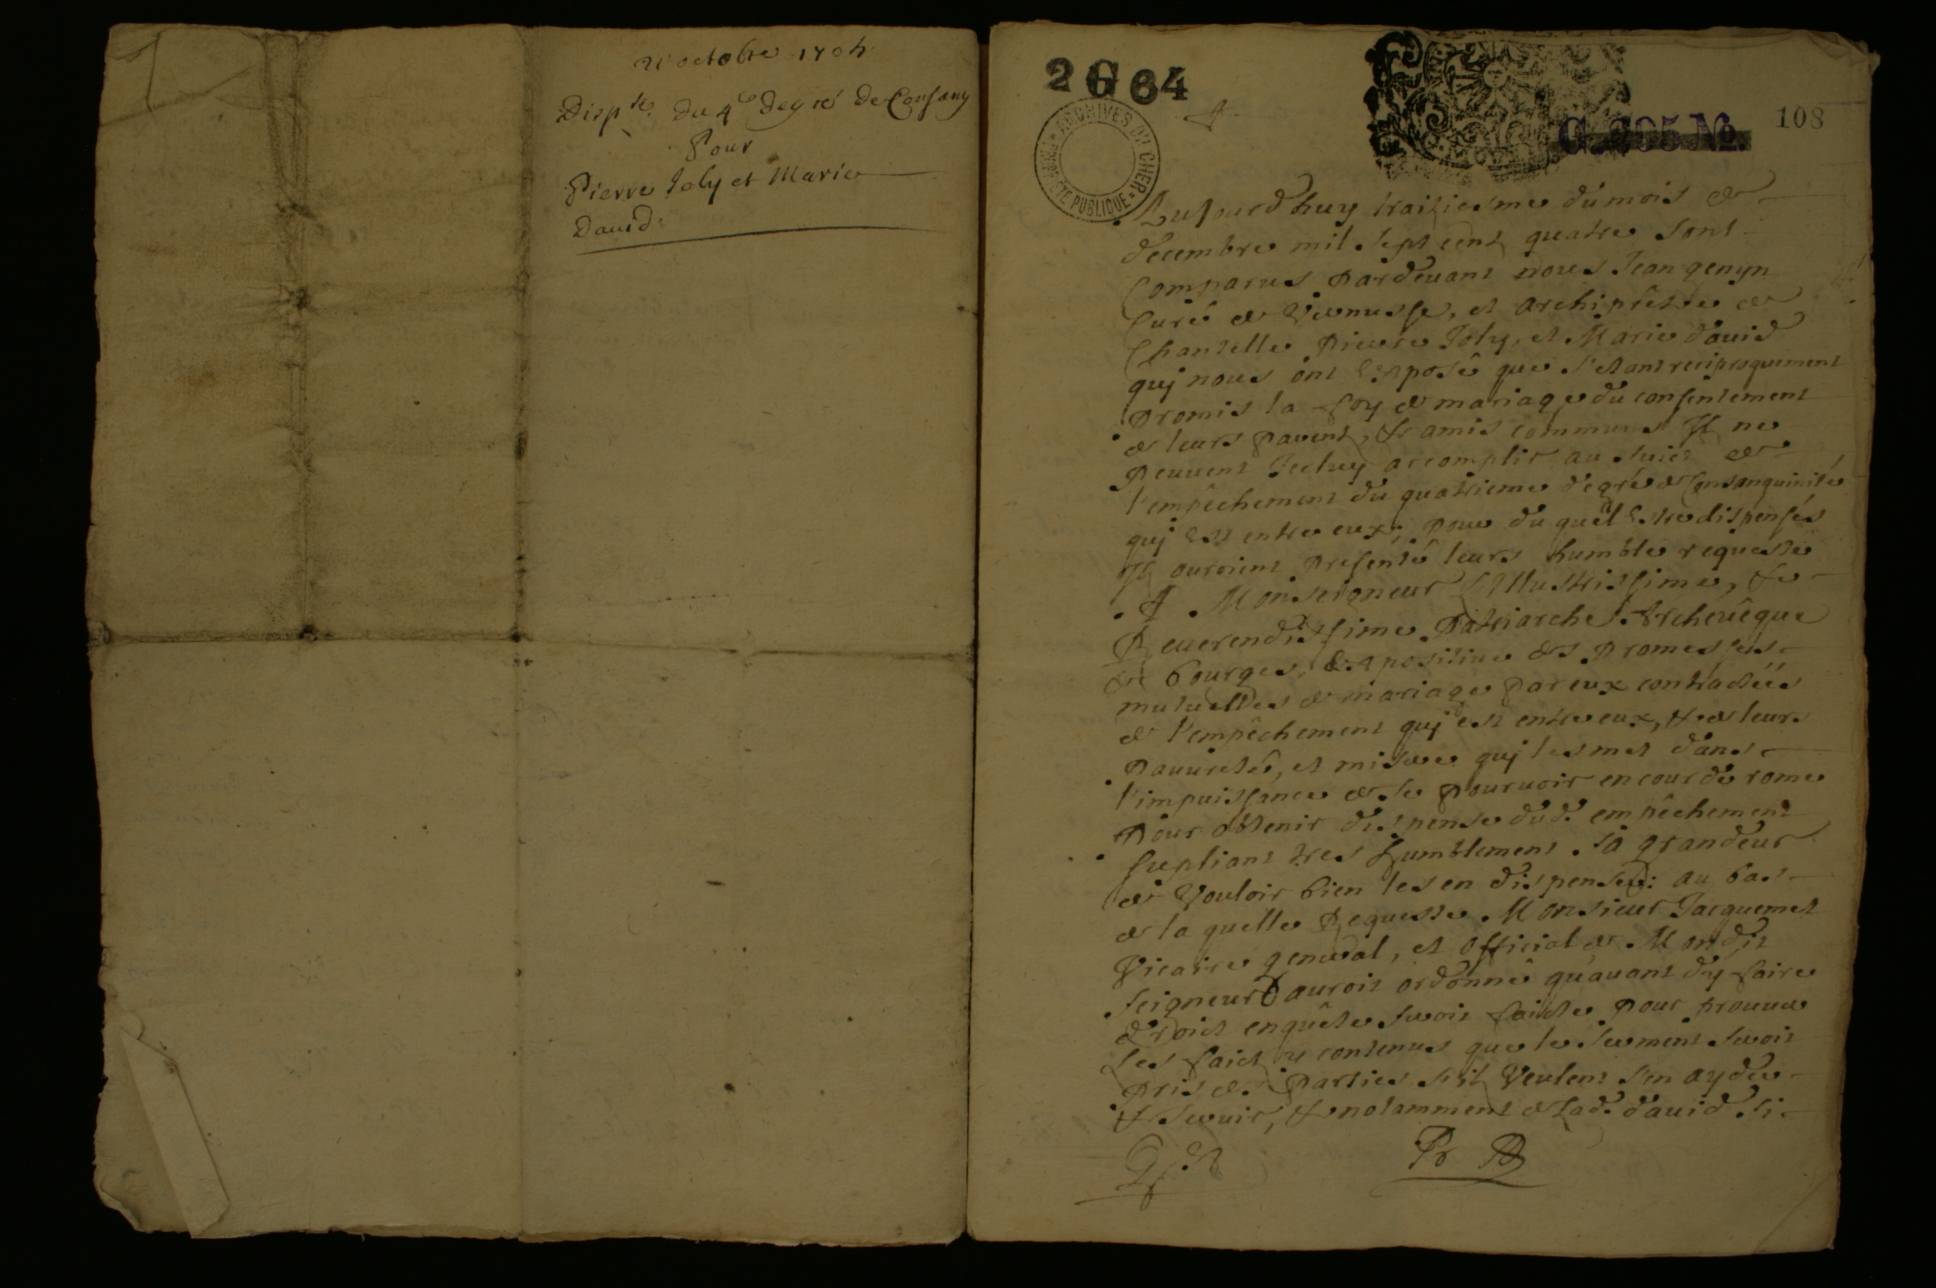 21 octobre 1704
Disp.se du 4e degré de Consang
Pour
Pierre Joly et Marie
David
2 G 64
ARCHIVES DU CHER
PROPRIÉTÉ PUBLIQUE
108
Aujourd'huy traiziesme du mois de
decembre mil sept cent quatre sont
Comparus Pardeuant nous Jean genyn
Curé de Vernusse, et archiprêstre de
Chantelle Pierre Joly, et Marie dauid
quj nous ont Exposé que s'estant reciproquement
Promis la foy de mariage du consentement
de leurs Parents, & amis communs Ils ne
Peuuent Jceluy accomplir au suiet de
l'empêchement du quatrieme degré de Consanguinité
quj Est entre eux; Pour du quel Estre dispensés
Ils auroient Presenté leurs humble requeste
A Monseigneur L'Illustrissime, &
Reuerendissime Patriarche Archeuêque
de bourges, Expositiue des Promesses
mutuelles de mariage Par eux contractées
de l'empêchement quj est entre eux, & de leurs
Pauureté, et misere quj les met dans
l'impuissance de se Pouruoir en cour de rome
Pour obtenir dispense dud. empêchement
supliant tres humblement sa grandeur
de Vouloir bien les en dispenser: au bas
de la quelle Requeste Monsieur Jacquemet
Vicaire general, et official de Mondit
seigneur auroit ordonné qu'auant d'y faire
droict enquête seroit faicte Pour prouuer
Les faict y contenus que le serment seroit
Pris des Parties s'ils Veulent s'en ayder
& seruir, & notamment de Lad. dauid si